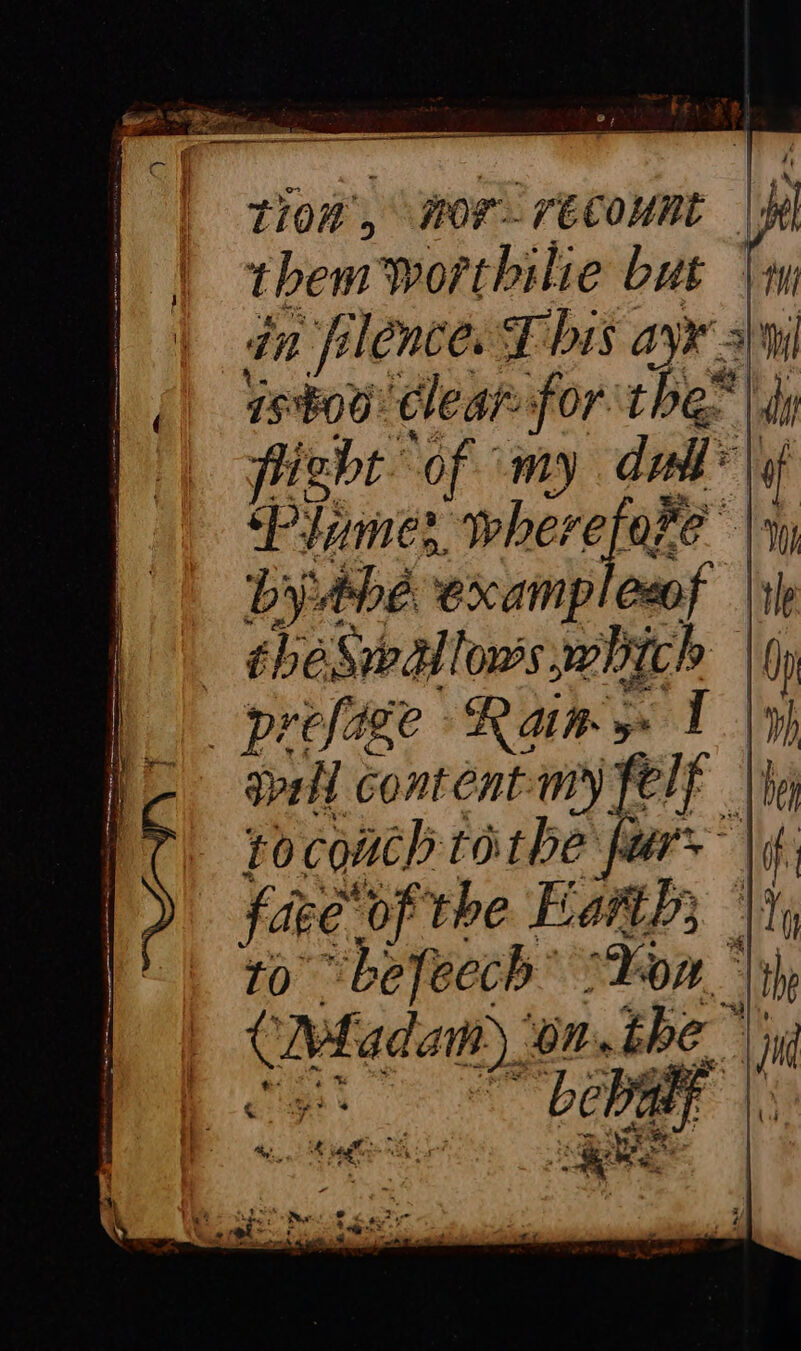 tion, nor recount
them worthilie but
in ſilence. This ayr
is too clear for the
flight of my dull
Plumes, wherefore
by the example of
the Swallows which
preſage Rain, I
will content my ſelf
to couch to the ſur-
face of the Earth;
to beſeech You
(Madam) on the
behalf